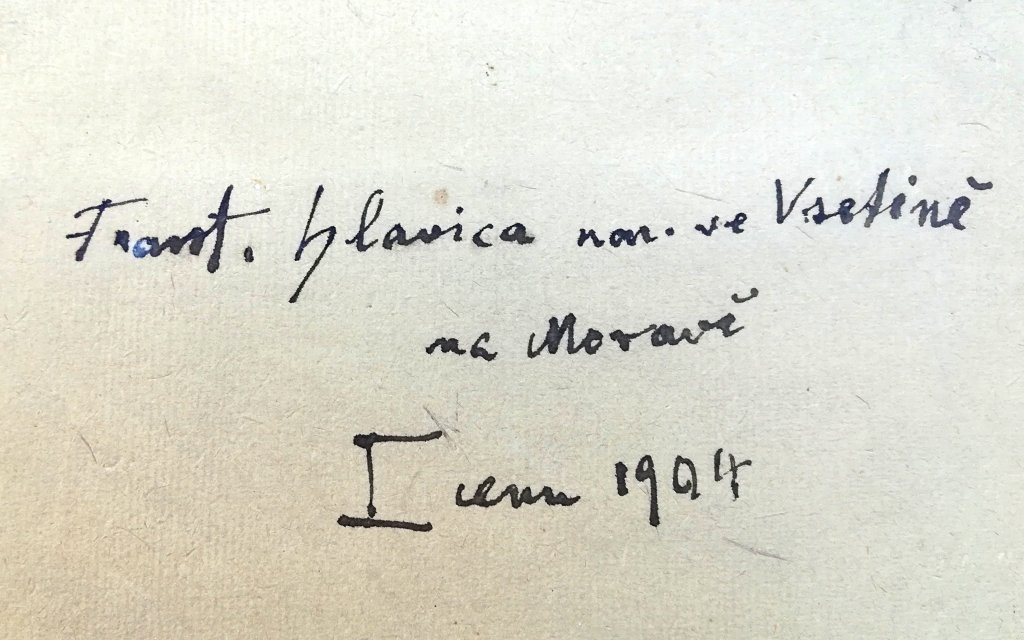 Frant. Hlavica nar. ve Vsetíně
na Moravě
I cenu 1904